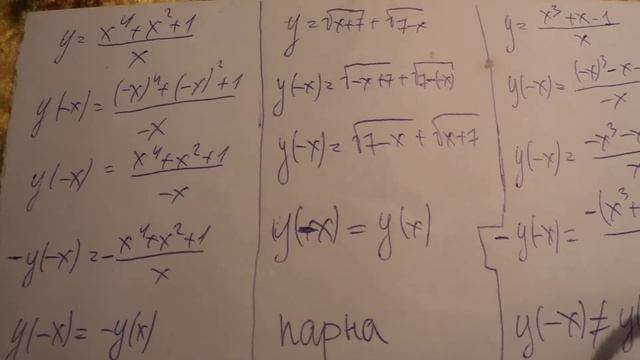 y = x⁴+x²+1 / x
y(-x) = (-x)⁴+(-x)²+1 / -x
y(-x) = x⁴+x²+1 / -x
-y(-x) = - x⁴+x²+1 / x
y(-x) = -y(x)
y = √x+7 + √7-x
y(-x) = √-x+7 + √7-(-x)
y(-x) = √7-x + √x+7
y(-x) = y(x)
парна
y = x³+x-1 / x
y(-x) = (-x)³-x- / -x
y(-x) = -x³-x- / -x
-y(-x) = -(x³+
y(-x) ≠ y(